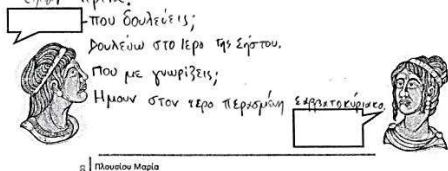 που δουλεύεις;
Δουλεύω στο Ιερο της Σήστου.
Που με γνωρίζεις;
Ημουν στον ιερο περασμένη Σαββατοκύριακο.
8 Πλουσίου Μαρία